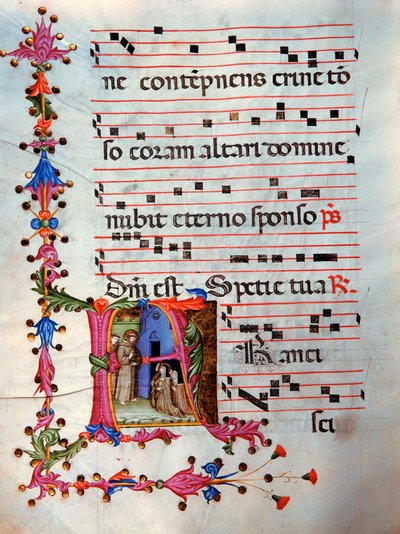 ne contēpnens crine tō
so coram altari domine
nubit eterno sponso p̄s
Dn̄i est Spetie tua R.
Ranci
sci